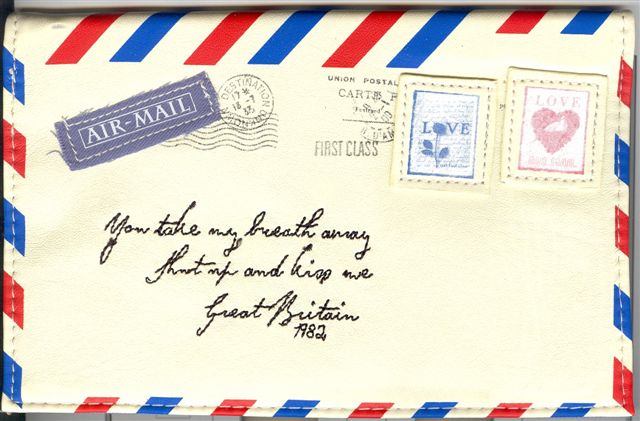 UNION POSTAL
CARTE P
DESTINATION UNKNOWN
AIR-MAIL
FIRST CLASS
LOVE
LOVE
You take my breath away
Shut up and kiss me
Great Britain
1982